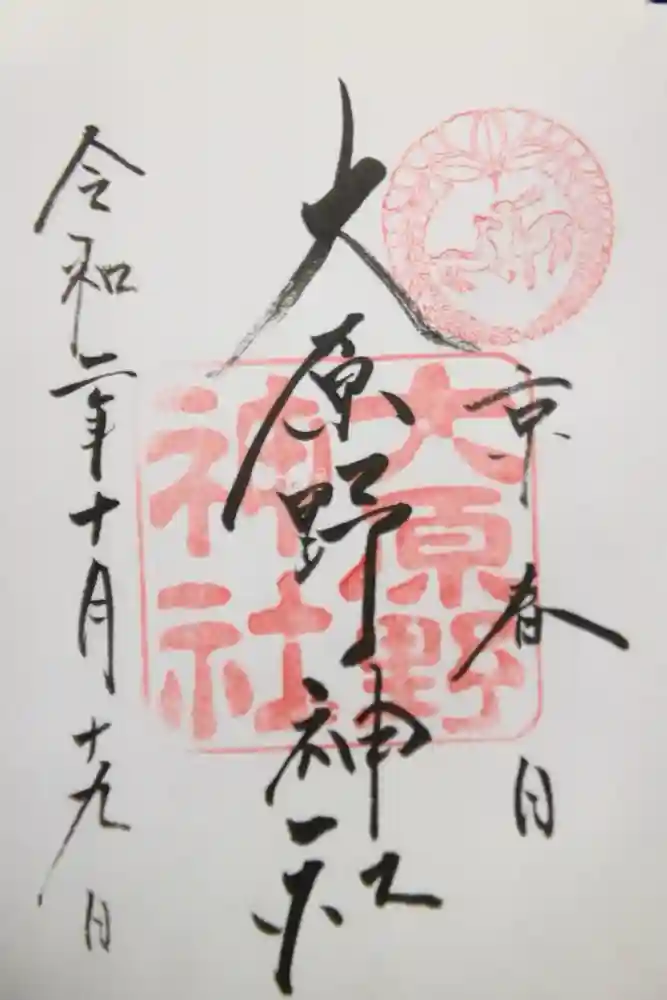 京春日
大原野神社
大原野
神社
令和二年十月十九日